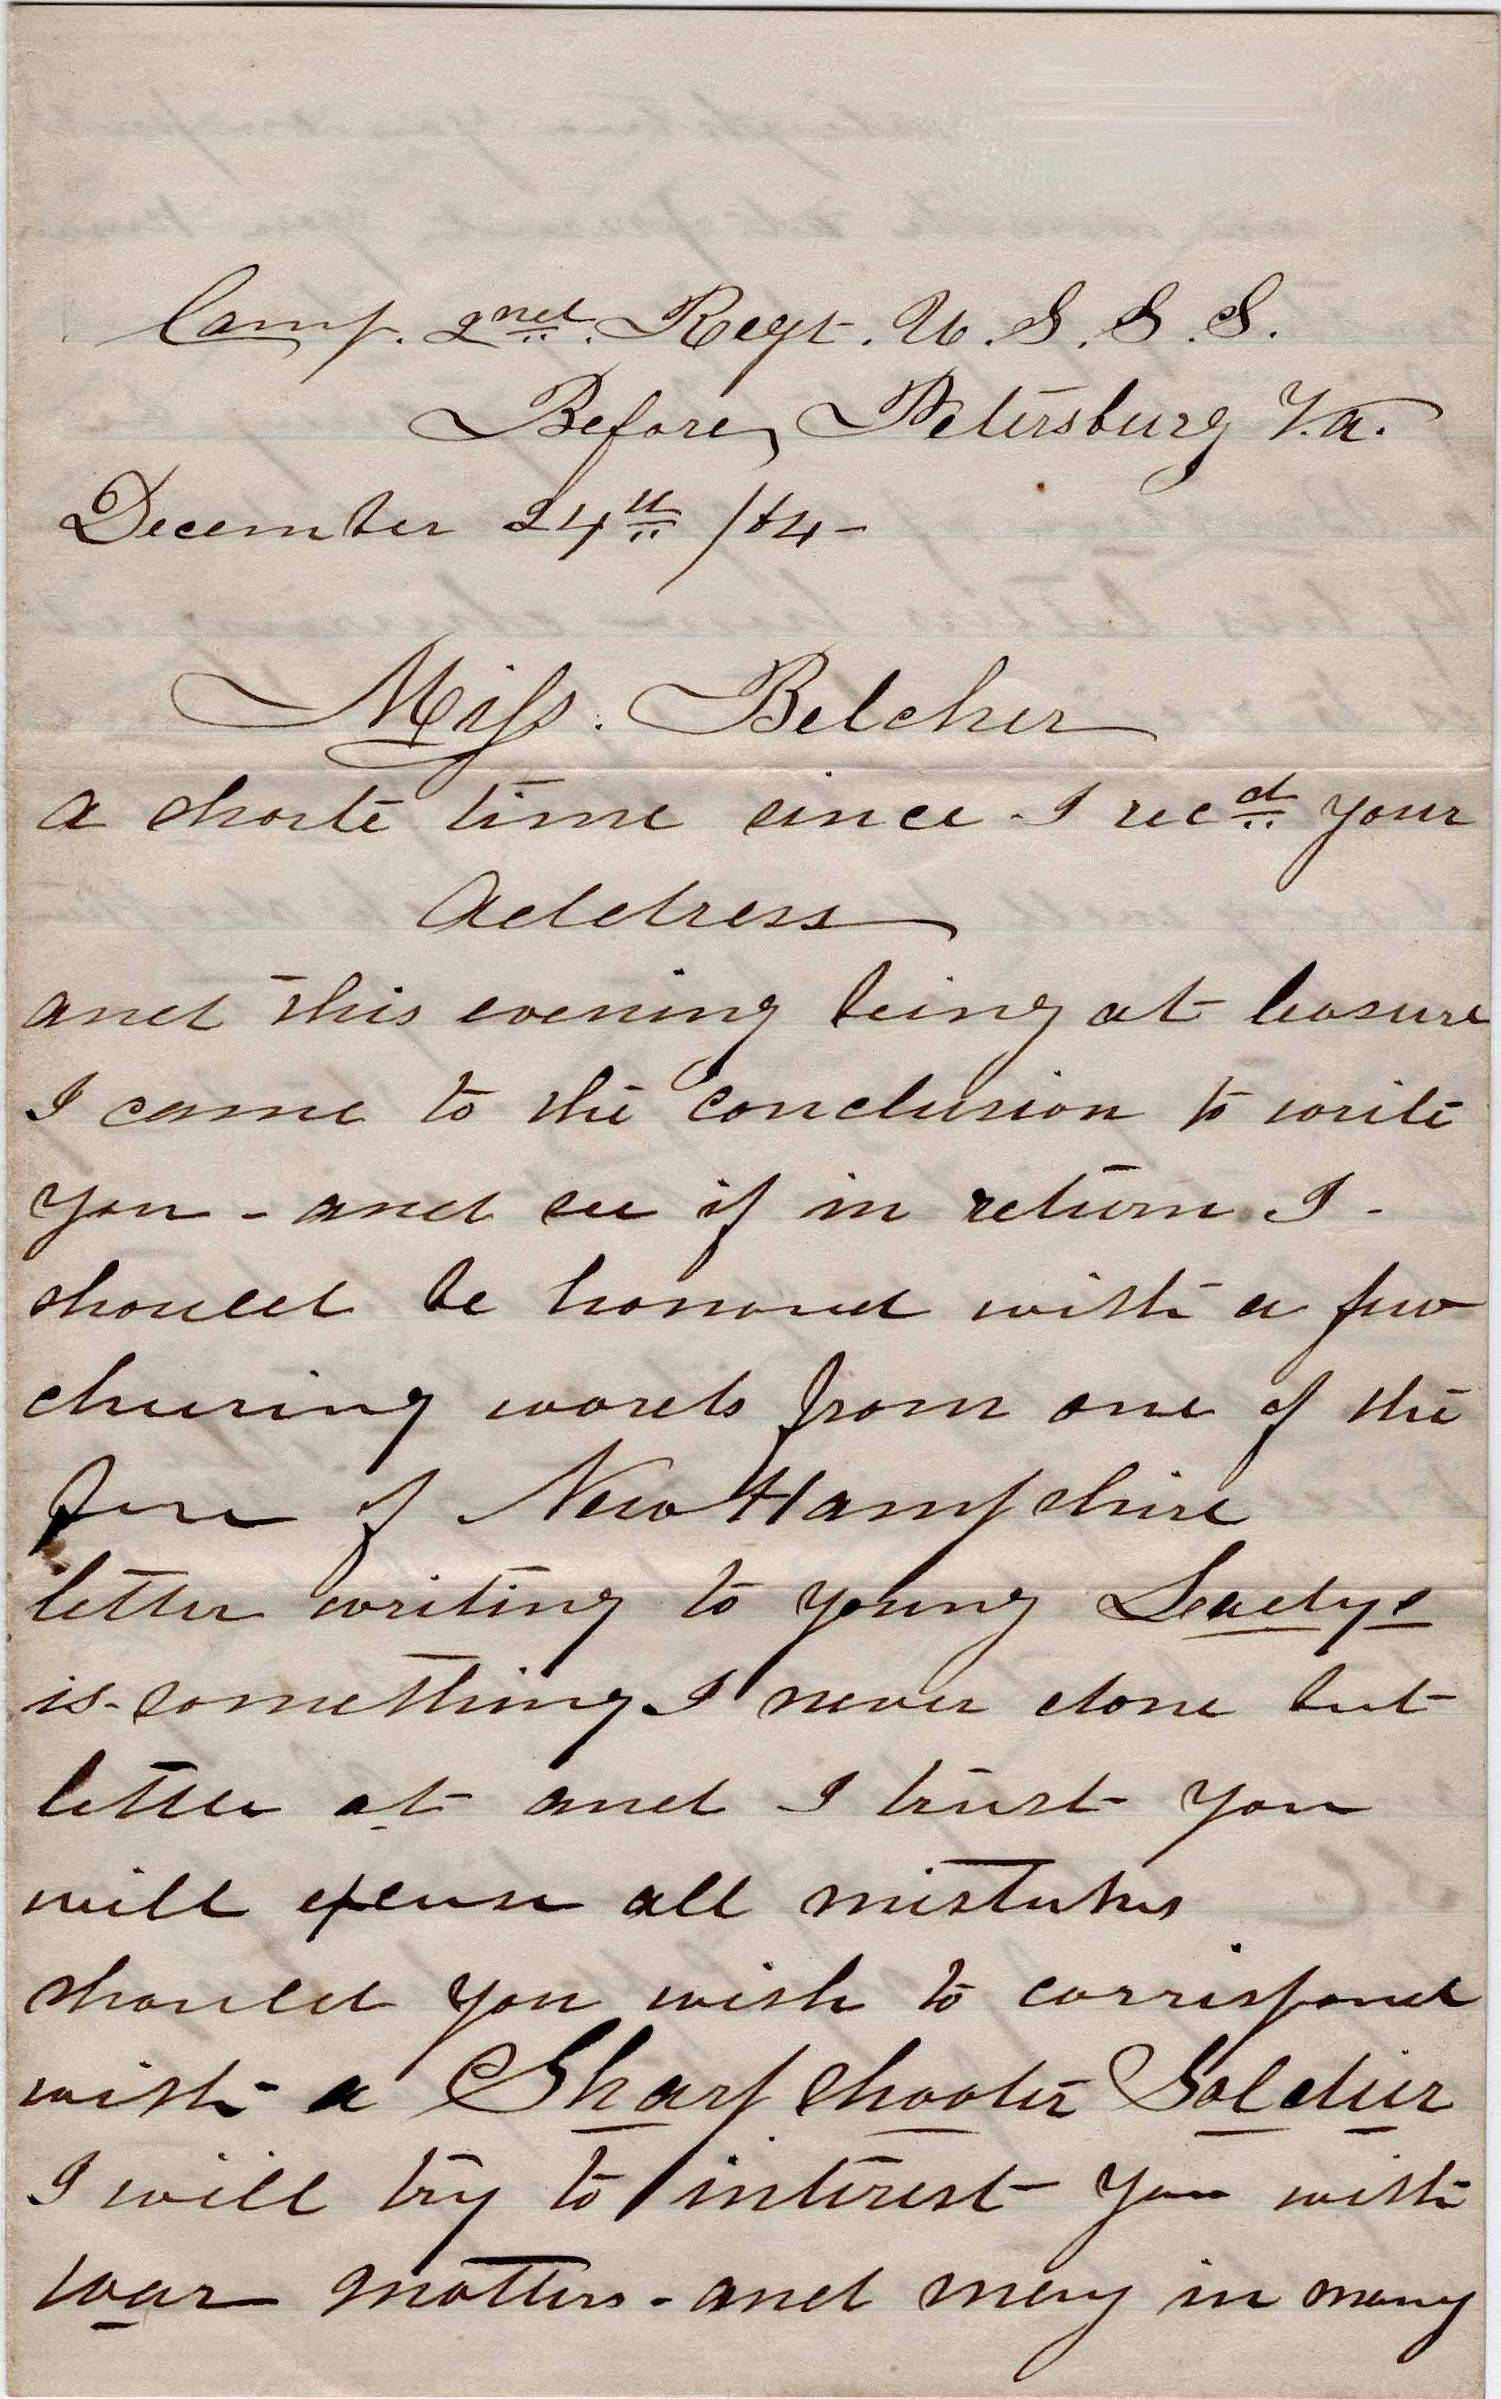 Camp. 2nd. Regt. U.S.S.S.
Before, Petersburg Va.
December 24th /64-
Miss. Belcher
a shorte time since - I recd your
Address
and this evening being at leasure
I came to the conclusion to write
you - and see if in return I -
should be honored with a few
cheering words from one of the
fare of New Hampshire
letter writing to young Ladys
is - something I never done but
little at and I trust you
will excuse all mistakes
should you wish to correspond
with a Sharp shooter Soldier
I will try to interest you with
war matters - and may in many